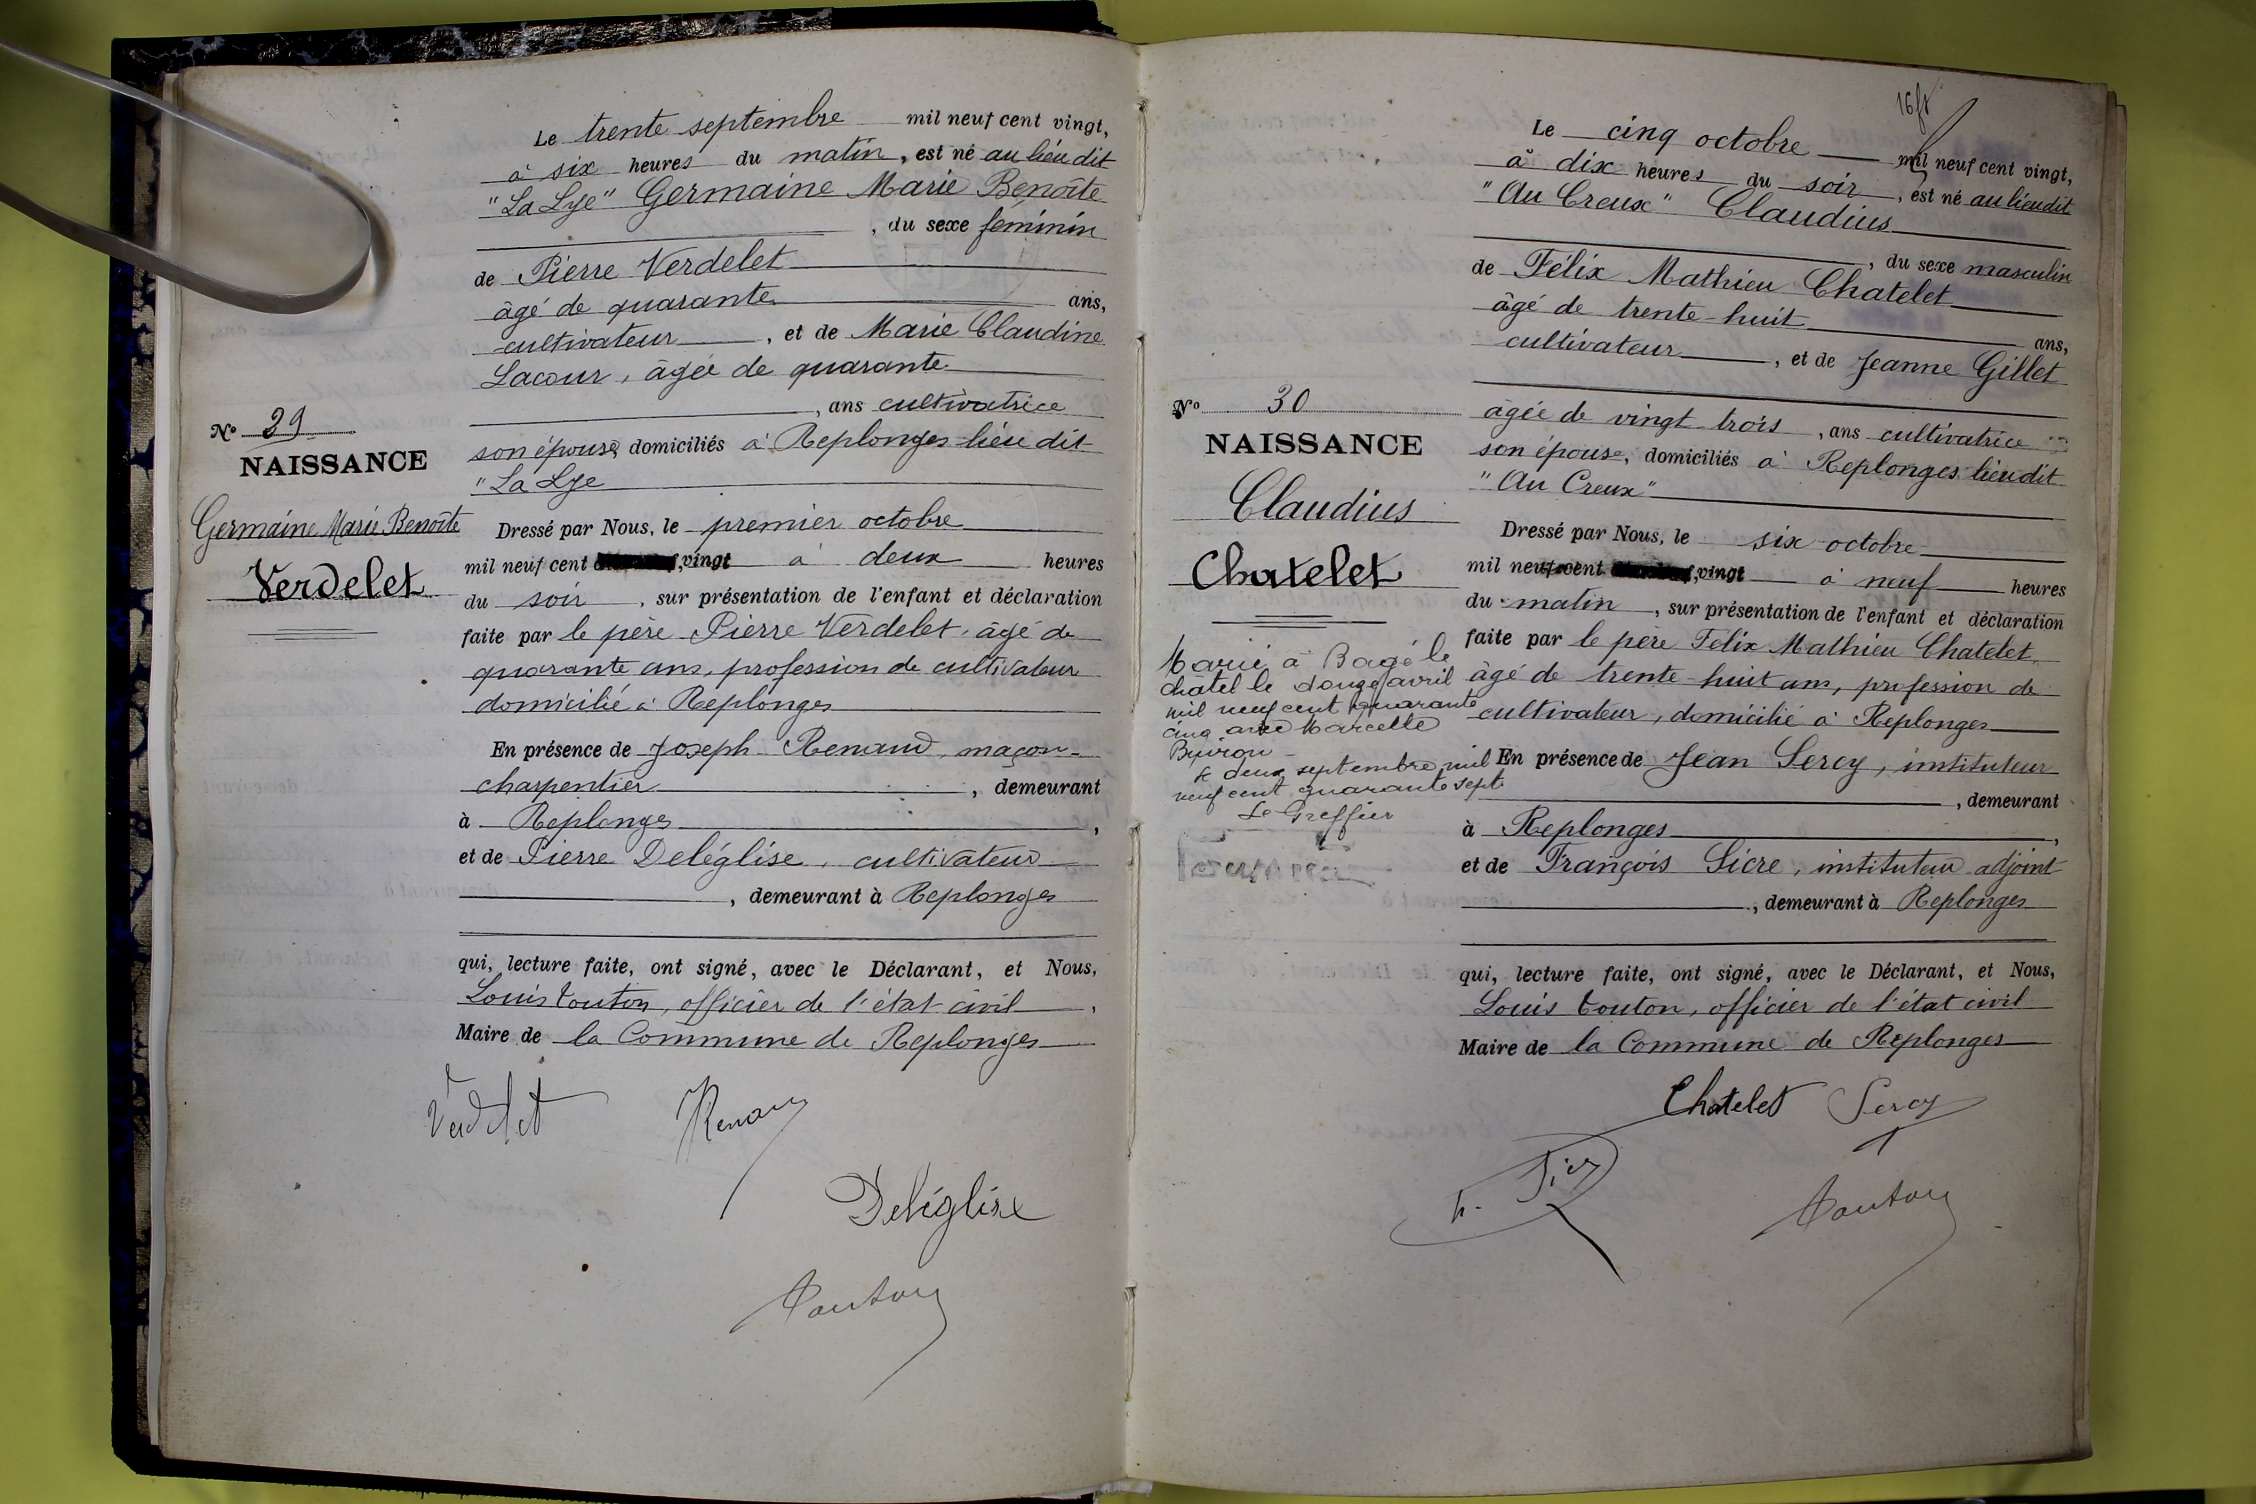 Le trente septembre mil neuf cent vingt,
à six heures du matin, est né au lieu dit
"La Lye" Germaine Marie Benoîte
, du sexe féminin
de Pierre Verdelet
âgé de quarante ans,
cultivateur, et de Marie Claudine
Lacour, âgée de quarante
, ans cultivatrice
son épouse, domiciliés à Replonges lieu dit
"La Lye
Nº 29
NAISSANCE
Germaine Marie Benoîte
Verdelet
Dressé par Nous, le premier octobre
mil neuf cent vingt à deux heures
du soir, sur présentation de l'enfant et déclaration
faite par le père Pierre Verdelet, âgé de
quarante ans, profession de cultivateur
domicilié à Replonges
En présence de Joseph Renaud, maçon-
charpentier, demeurant
à Replonges,
et de Pierre Deléglise, cultivateur
, demeurant à Replonges
qui, lecture faite, ont signé, avec le Déclarant, et Nous,
Louis Touton, officier de l'état civil,
Maire de la Commune de Replonges
Verdelet Renaud
Deléglise
Touton
Le cinq octobre mil neuf cent vingt,
à dix heures du soir, est né au lieu dit
"Au Creux" Claudius
, du sexe masculin
de Félix Mathieu Chatelet
âgé de trente-huit ans,
cultivateur, et de Jeanne Gillet
âgée de vingt trois, ans cultivatrice
son épouse, domiciliés à Replonges lieu dit
"Au Creux"
Nº 30
NAISSANCE
Claudius
Chatelet
Marié à Bagé le
châtel le douze avril
mil neuf cent quarante
cinq avec Marcelle
Buiron
le deux septembre mil
neuf cent quarante sept
Le Greffier
Dressé par Nous, le six octobre
mil neuf cent vingt à neuf heures
du matin, sur présentation de l'enfant et déclaration
faite par le père Félix Mathieu Chatelet,
âgé de trente-huit ans, profession de
cultivateur, domicilié à Replonges
En présence de Jean Sercy, instituteur
, demeurant
à Replonges,
et de François Sicre, instituteur adjoint
, demeurant à Replonges
qui, lecture faite, ont signé, avec le Déclarant, et Nous,
Louis Touton, officier de l'état civil
Maire de la Commune de Replonges
Chatelet Sercy
Touton